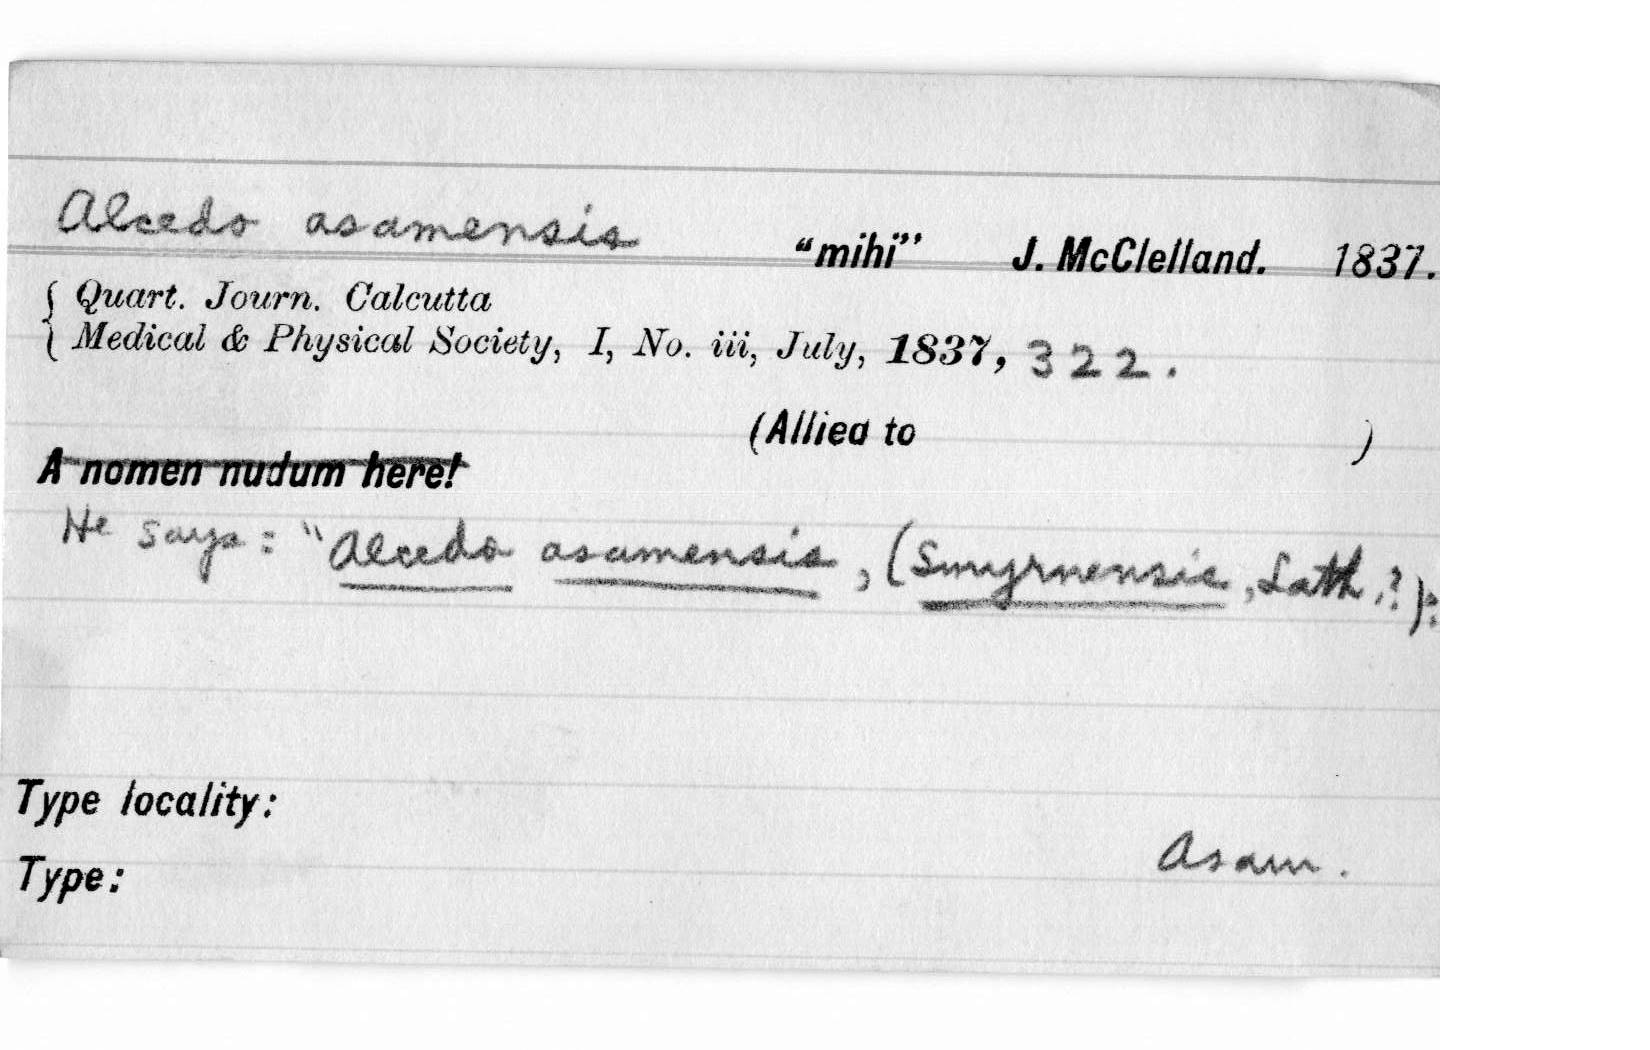 Alcedo asamensis "mihi" J. McClelland. 1837.
{ Quart. Journ. Calcutta
{ Medical & Physical Society, I, No. iii, July, 1837, 322.
(Allied to )
A nomen nudum here!
He says: "Alcedo asamensis, (Smyrnensis, Lath.?):
Type locality:
Asam.
Type: